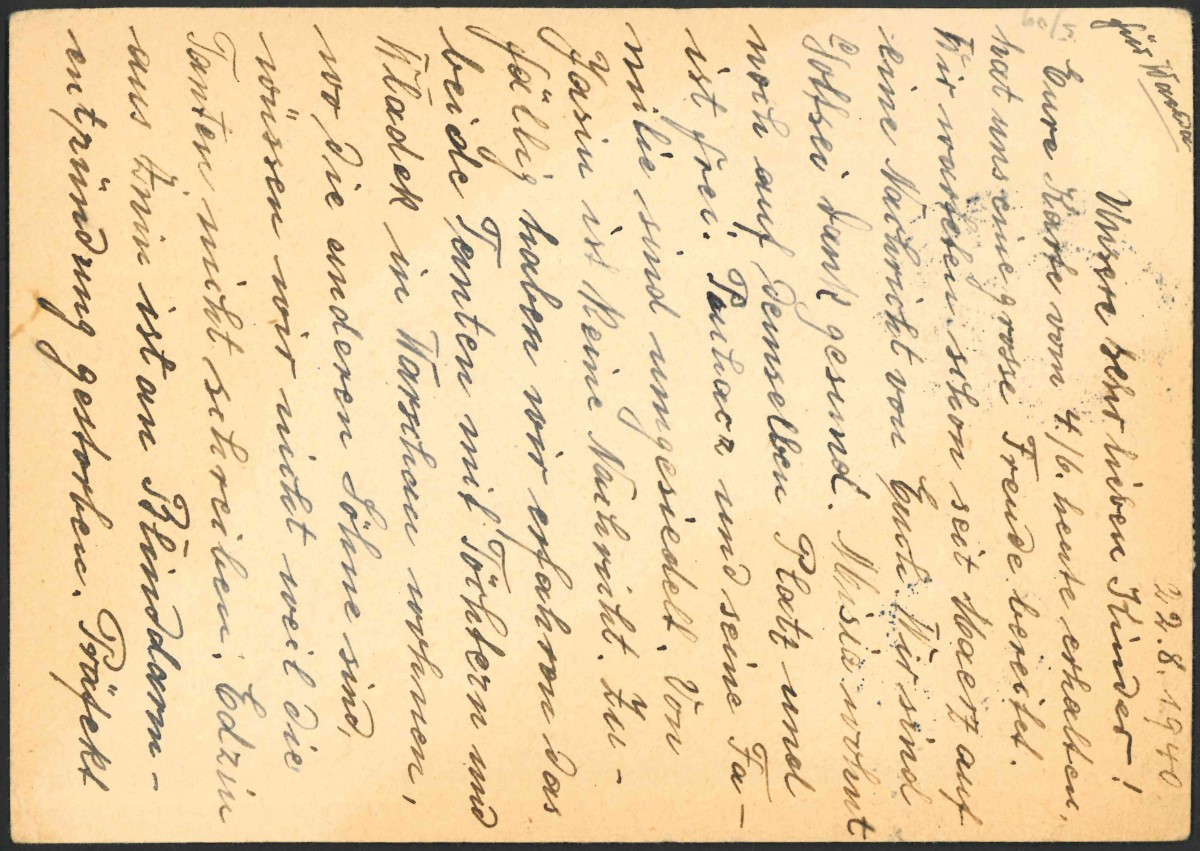 für Wanda
22.8.1940.
Unsere sehr lieben Kinder!
Eure Karte vom 4./6. heute erhalten,
hat uns eine grosse Freude bereitet.
Wir warten schon seit Maerz auf
eine Nachricht von Euch. Wir sind
Gottsei dank gesund. Misia wohnt
noch auf demselben Platz und
ist frei. Pauhacz und seine Fa-
milie sind umgesiedelt. Von
Jasiu ist keine Nachricht. Zu-
fällig haben wir erfahren das
beide Tanten mit Töchtern und
Wladek in Warschau wohnen,
wo die anderen Söhne sind,
wüssen wir nicht weil die
Tanten nicht schreiben. Edziu
aus Znin ist an Blinddarm-
entzündung gestorben. Präfekt